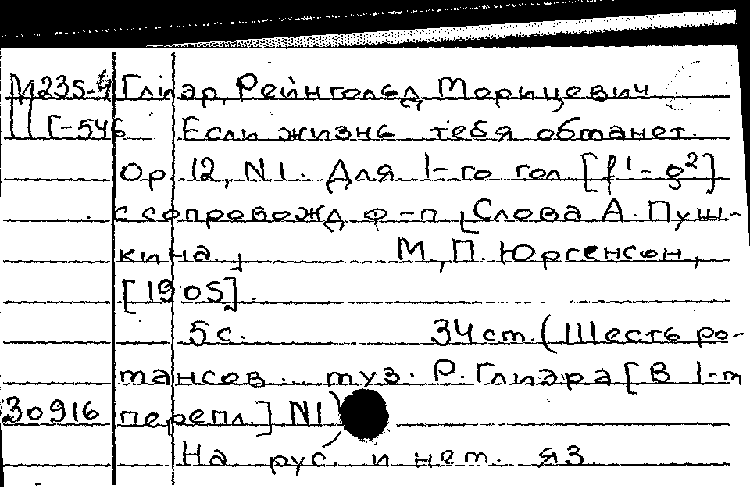 М235-4 Глиэр, Рейнгольд Морицевич
Г-546 Если жизнь тебя обманет.
Op. 12, N1. Для 1-го гол [f¹-g²]
с сопровожд. ф-п [Слова А. Пуш-
кина] М., П. Юргенсон,
[1905].
5 с. 34 см. (Шесть ро-
мансов... муз. Р. Глиэра [В 1-м
30916 перепл] N1)
На рус. и нем. яз